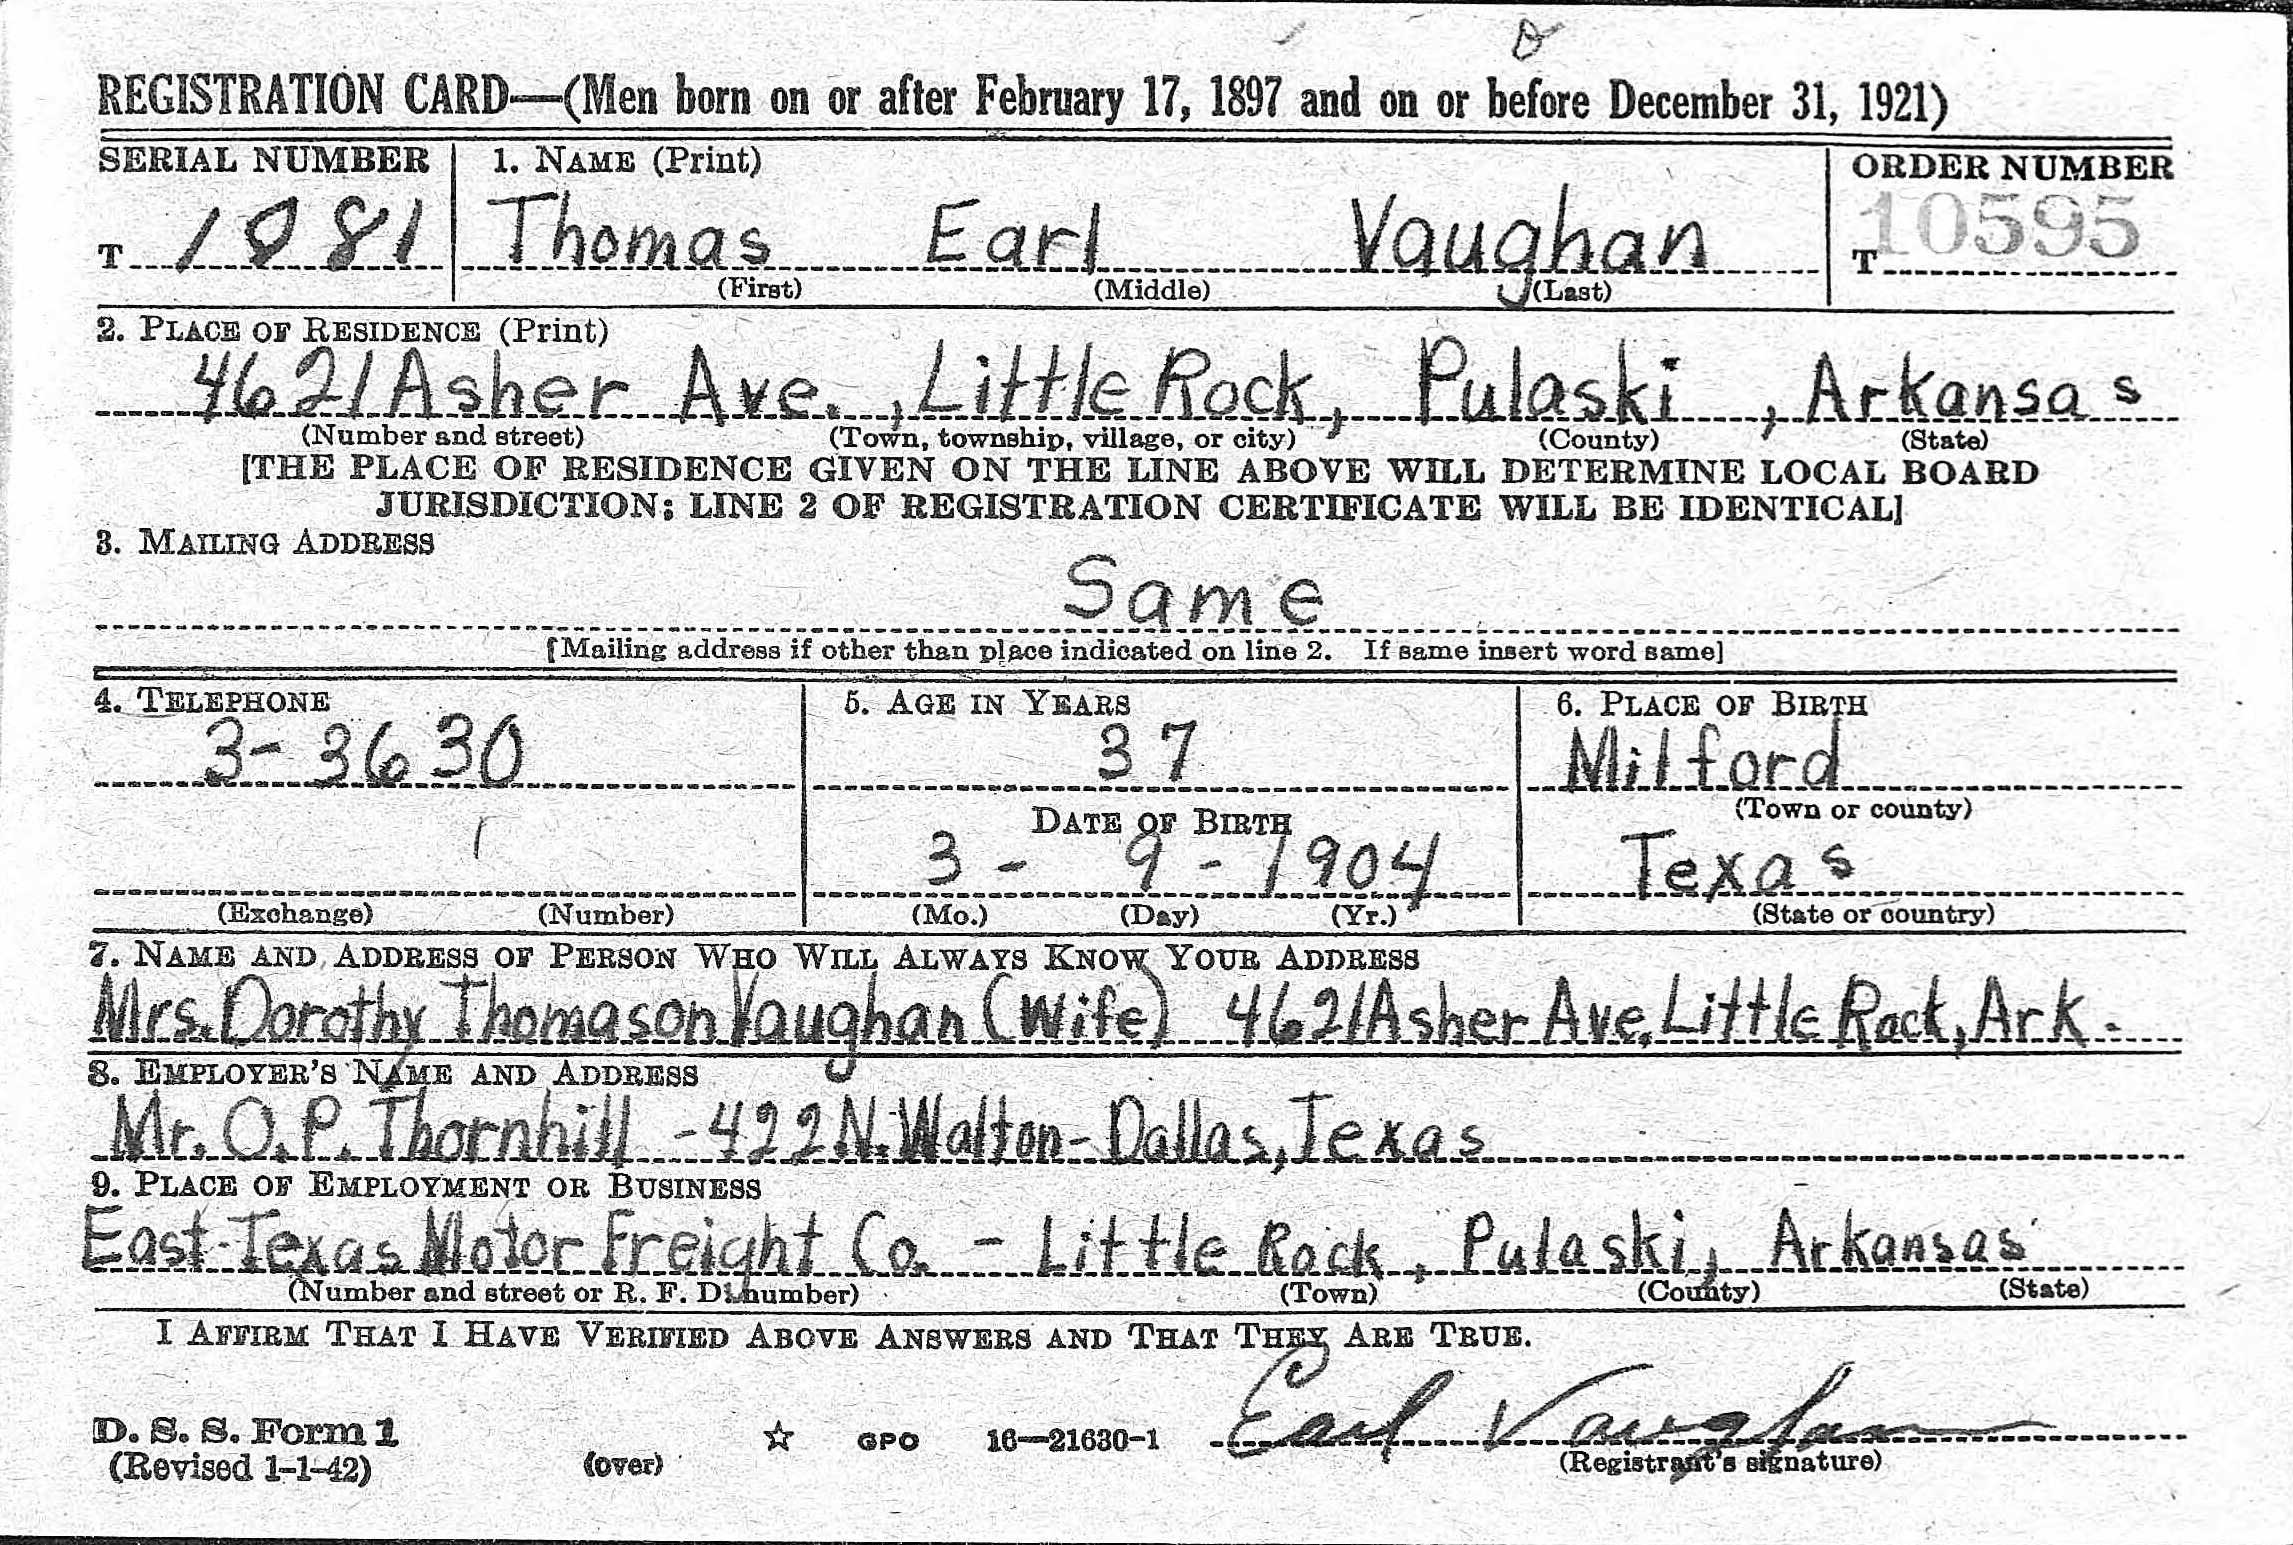 REGISTRATION CARD—(Men born on or after February 17, 1897 and on or before December 31, 1921)
SERIAL NUMBER 1. NAME (Print) ORDER NUMBER
T 1081 Thomas Earl Vaughan T 10595
(First) (Middle) (Last)
2. PLACE OF RESIDENCE (Print)
4621 Asher Ave., Little Rock, Pulaski, Arkansas
(Number and street) (Town, township, village, or city) (County) (State)
[THE PLACE OF RESIDENCE GIVEN ON THE LINE ABOVE WILL DETERMINE LOCAL BOARD
JURISDICTION; LINE 2 OF REGISTRATION CERTIFICATE WILL BE IDENTICAL]
3. MAILING ADDRESS
Same
[Mailing address if other than place indicated on line 2. If same insert word same]
4. TELEPHONE 5. AGE IN YEARS 6. PLACE OF BIRTH
3-3630 37 Milford
(Town or county)
DATE OF BIRTH
3 - 9 - 1904 Texas
(Exchange) (Number) (Mo.) (Day) (Yr.) (State or country)
7. NAME AND ADDRESS OF PERSON WHO WILL ALWAYS KNOW YOUR ADDRESS
Mrs. Dorothy Thomason Vaughan (Wife) 4621 Asher Ave, Little Rock, Ark.
8. EMPLOYER'S NAME AND ADDRESS
Mr. O.P. Thornhill - 422 N. Walton - Dallas, Texas
9. PLACE OF EMPLOYMENT OR BUSINESS
East-Texas Motor Freight Co. - Little Rock, Pulaski, Arkansas
(Number and street or R. F. D. number) (Town) (County) (State)
I AFFIRM THAT I HAVE VERIFIED ABOVE ANSWERS AND THAT THEY ARE TRUE.
Earl Vaughan
D. S. S. Form 1 GPO 16—21630-1
(Revised 1-1-42) (over) (Registrant's signature)